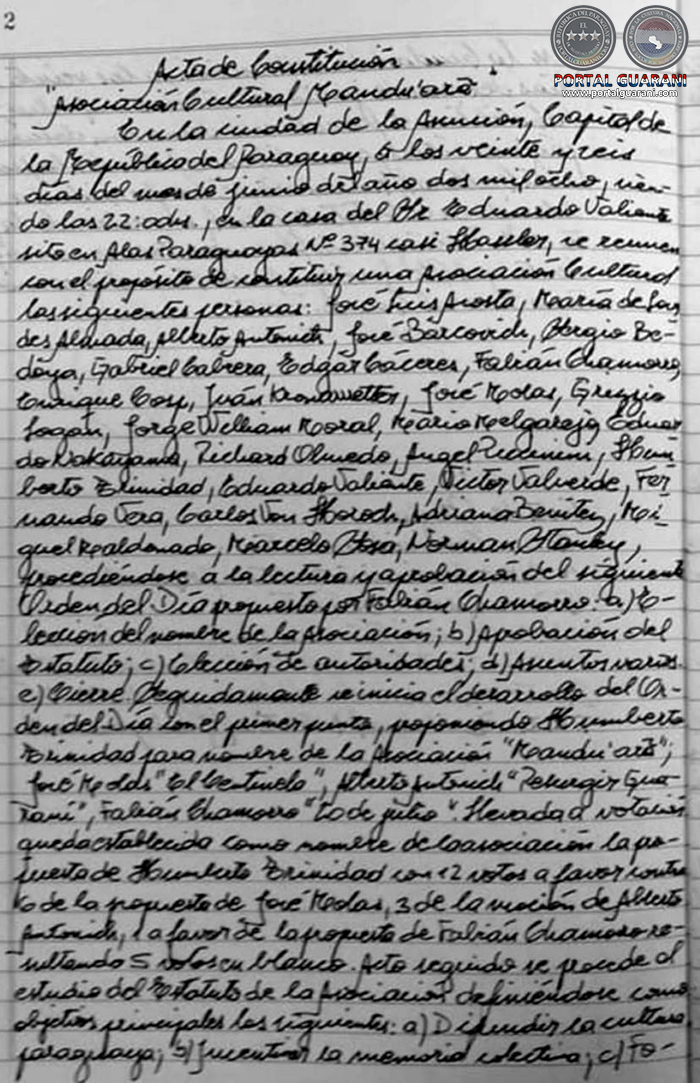 2
PORTAL GUARANI
www.portalguarani.com
Acta de Constitución
"Asociación Cultural Mandu'arã".
En la ciudad de la Asunción, Capital de
la República del Paraguay, a los veinte y seis
días del mes de junio del año dos mil ocho, sien-
do las 22: hs., en la casa del Sr. Eduardo Valiente
sito en Alas Paraguayas Nº 374 casi Hassler, se reunen
con el propósito de constituir una Asociación Cultural
las siguientes personas: José Luis Acosta, María de Lour
des Almada, Alberto Antonich, José Barcovich, Sergio Be-
doya, Gabriel Cabrera, Edgar Cáceres, Fabián Chamorro,
Enrique Cosp, Juán Kronawetter, José Molas, Grezzio
Logan, Jorge William Moral, Mario Melgarejo, Eduar
do Nakayama, Richard Olmedo, Angel Piccinini, Hum
berto Trinidad, Eduardo Valiente, Victor Valverde, Fer
nando Vera, Carlos Von Horoch, Adriana Benítez, Mi-
guel Maldonado, Marcelo Sosa, Norman Stanley,
procediéndose a la lectura y aprobación del siguiente
Orden del Día propuesto por Fabián Chamorro: a) E-
leccion del nombre de la Asociación; b) Aprobación del
Estatuto; c) Elección de autoridades; d) Asuntos varios.
e) Cierre. Seguidamente se inicia el desarrollo del Or-
den del Día con el primer punto, proponiendo Humberto
Trinidad para nombre de la Asociación "Mandu'arã";
José Molas "El Centinela", Alberto Antonich "Resurgir Gua
raní", Fabián Chamorro "20 de julio". Llevada a votación
queda establecida como nombre de la asociación la pro-
puesta de Humberto Trinidad con 12 votos a favor contra
6 de la propuesta de José Molas, 3 de la moción de Alberto
Antonich, 1 a favor de la propuesta de Fabián Chamorro re-
sultando 5 votos en blanco. Acto seguido se procede al
estudio del Estatuto de la Asociación definiéndose como
objetivos principales los siguientes: a) Difundir la cultura
paraguaya; b) Incentivar la memoria colectiva; c) Fo-